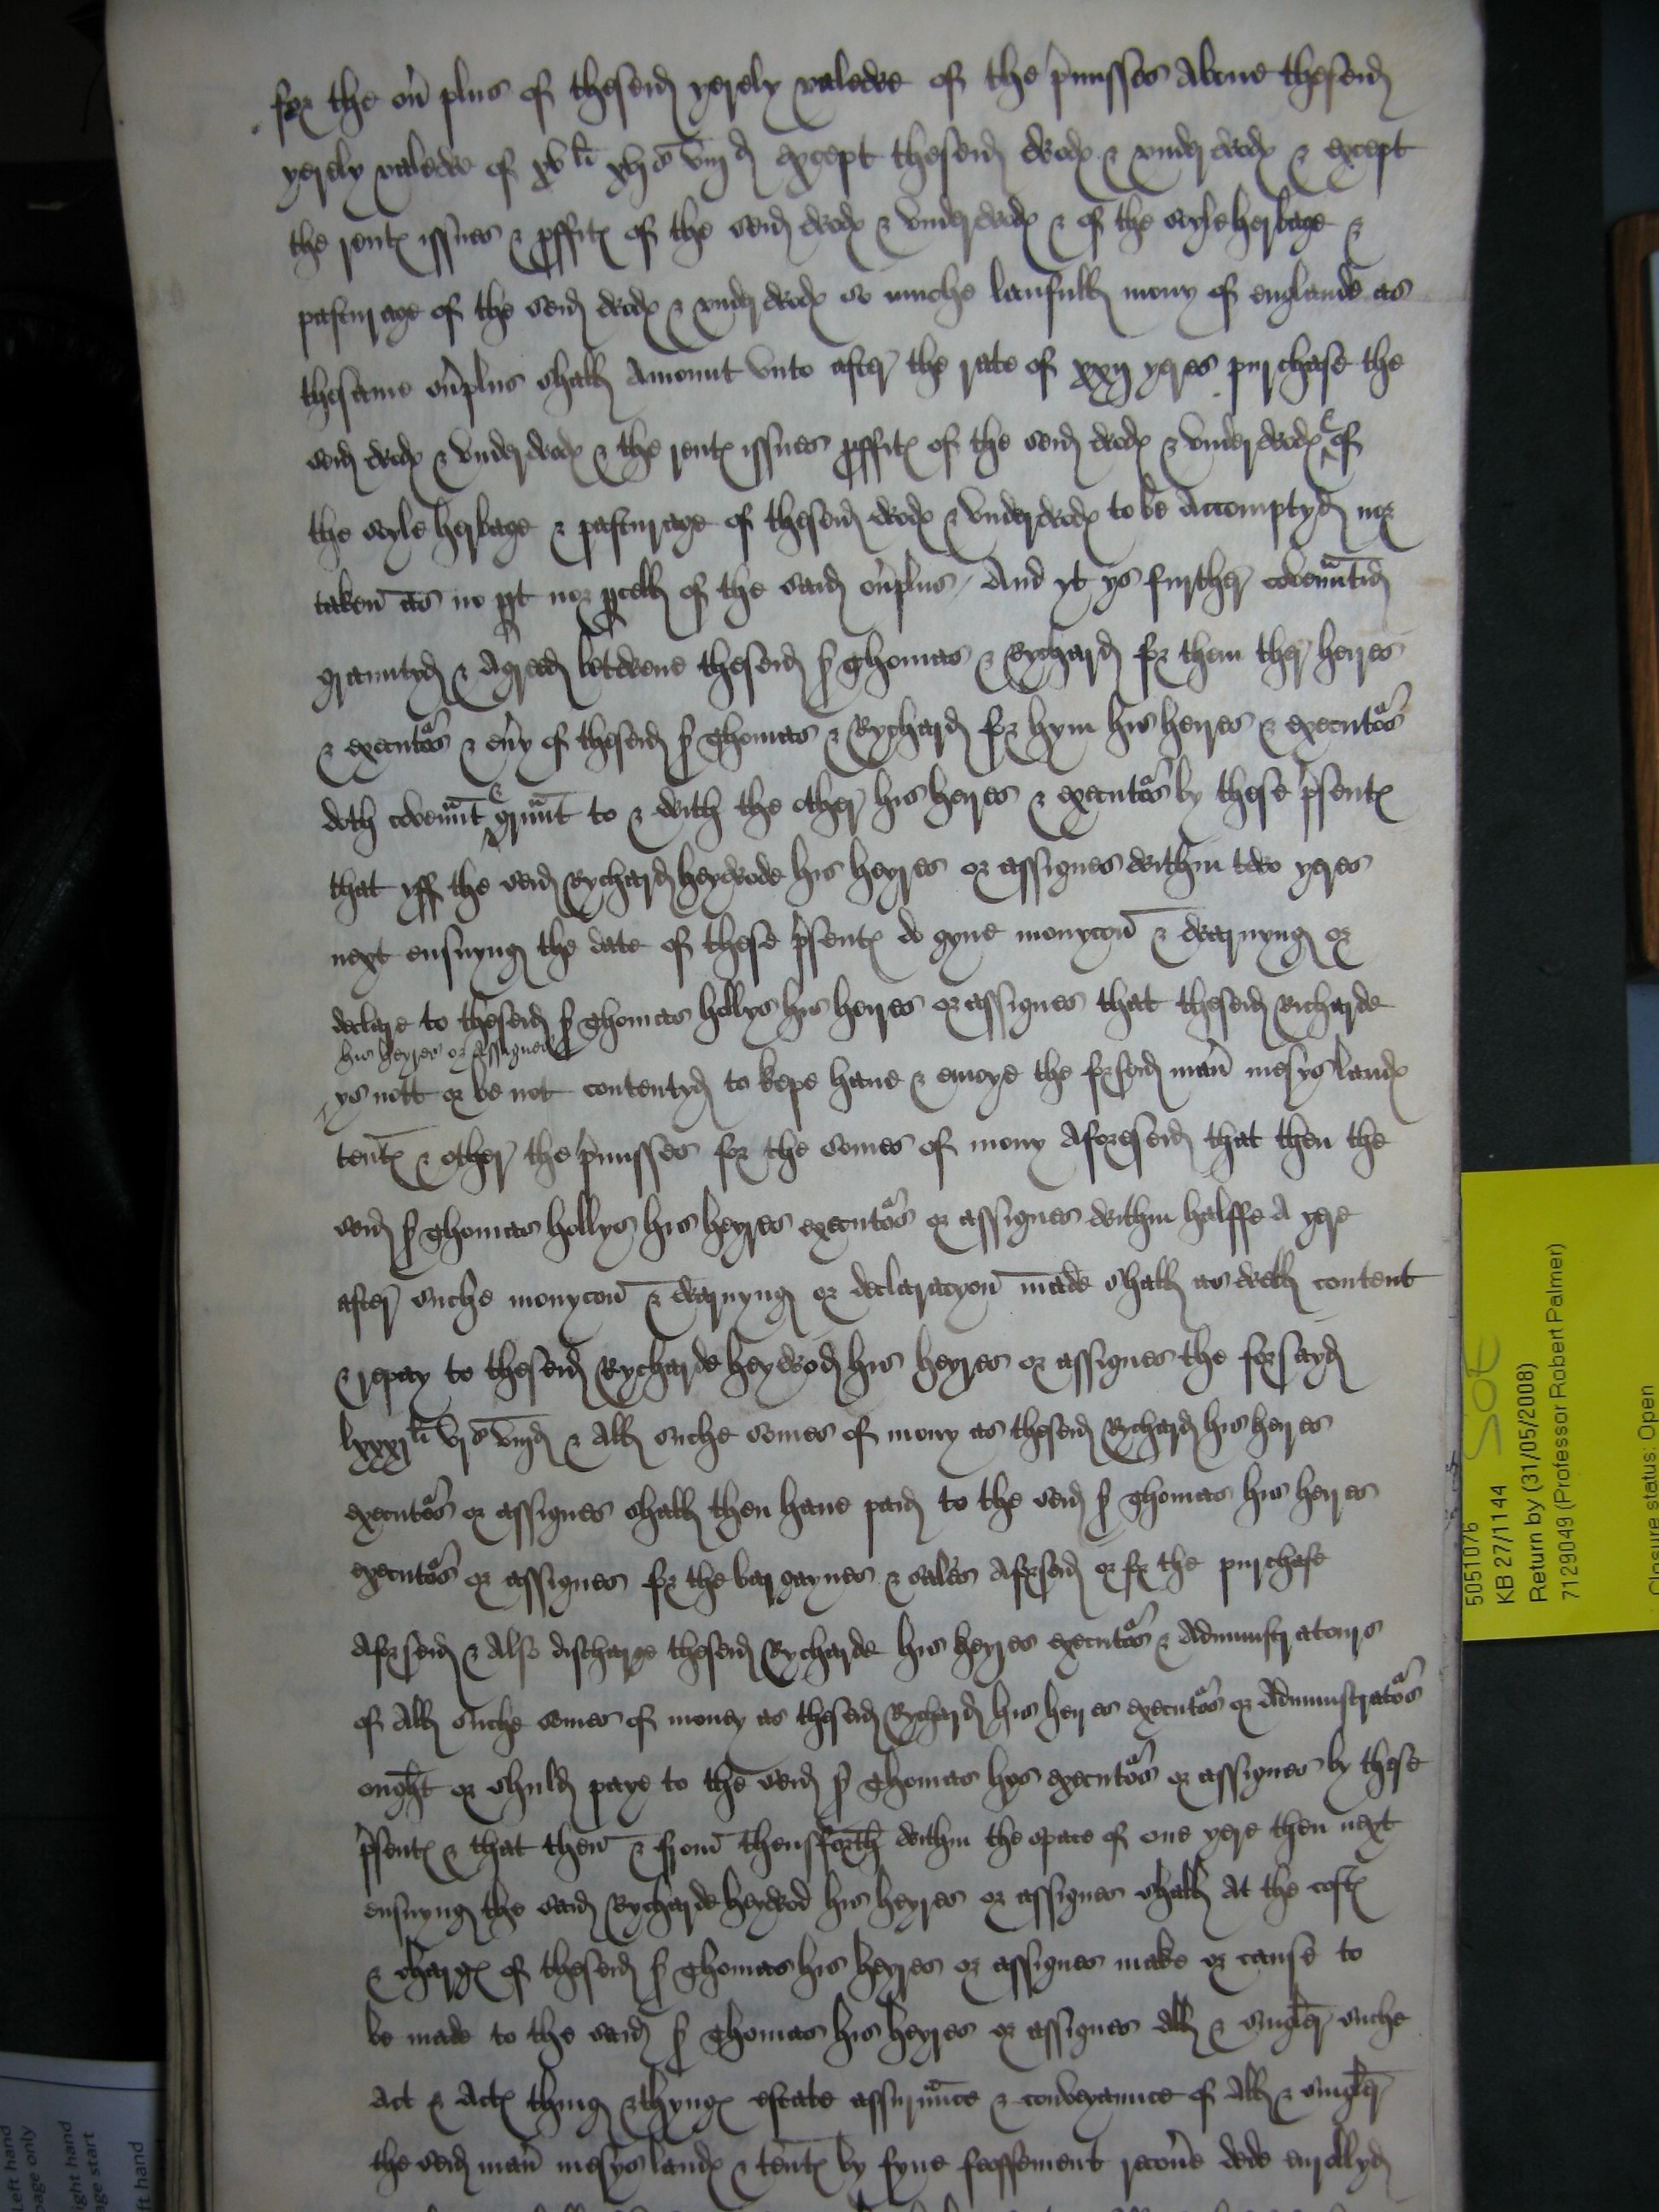 for the ou'plus of theseid yerely valewe of the p'misses Aboue theseid
yerely valewe of xv li xiij s iiij d except theseid wodς & vnderwodς & except
the rentς issues & pffitς of the seid wodς & vnderwodς & of the soyle herbage &
pasturage of the seid wodς & vnderwodς so muche laufull mony of englande as
thesame ou'plus shall Amount vnto after the rate of xxij yeres purchase the
seid wodς & vnderwodς & the rentς issues pffitς of the seid wodς & vnderwodς & of
the soyle herbage & pasturage of theseid wodς & vnderwodς to be Accomptyd nor
taken as no pt nor pcell of the said ou'plus / And yt ys further covenutid
grauntyd & Agreed betwene theseid S' Thomas & Rychard for them ther heyres
& executors & eu'y of theseid S' Thomas & Rychard for hym his heyres & executors
doth covenunt & grunt to & with the other his heyres & executors by these p'sentς
that yff the seid Rychard heywode his heyres or assignes within two yeres
next ensuyng the date of these p'sentς do gyue monycon & warnyng or
declare to theseid S' Thomas hollys his heyres or assignes that theseid Richarde
his heyres or Assignes
ys nott or be not contentyd to kepe haue & enioye the forseid man' mesys landς
tentς & other the p'misses for the somes of mony Aforeseid that then the
seid S' Thomas hollys his heyres executors or assignes within halffe A yere
after suche monycon & warnyng or declaracyon made shall as well content
& repay to theseid Rycharde heywod his heyres or assignes the forsayd
lxxxj li vj s viij d & All suche somes of mony as theseid Rychard his heyres
executors or assignes shall then haue paid to the seid S' Thomas his heyres
executors or assignes for the bargaynes & sales Aforseid or for the purchase
Aforseid & Also discharge theseid Rycharde his heyres executors & Administratours
of All suche somes of money as theseid Rychard his heyres executors or Administrators
ought or shuld paye to the seid S' Thomas hys executors or assignes by these
p'sentς & that then & from thensforth within the space of one yere then next
ensuyng the said Rycharde heywod his heyres or assignes shall At the costς
& chargς of theseid S' Thomas his heyres or assignes make or cause to
be made to the said S' Thomas his heyres or assignes All & singler suche
Act & Actς thing & thyngς estate assurunce & conveyaunce of All & singler
the seid man' mesys landς & tentς by fyne feoffement recou'e dede enrollyd
5051076
KB 27/1144 SoE
Return by (31/05/2008)
7129049 (Professor Robert Palmer)
Closure status: Open